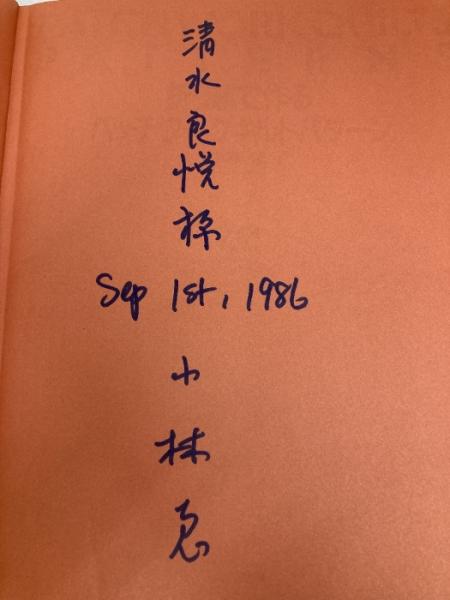 清水良悦様
Sep 1st, 1986
小林